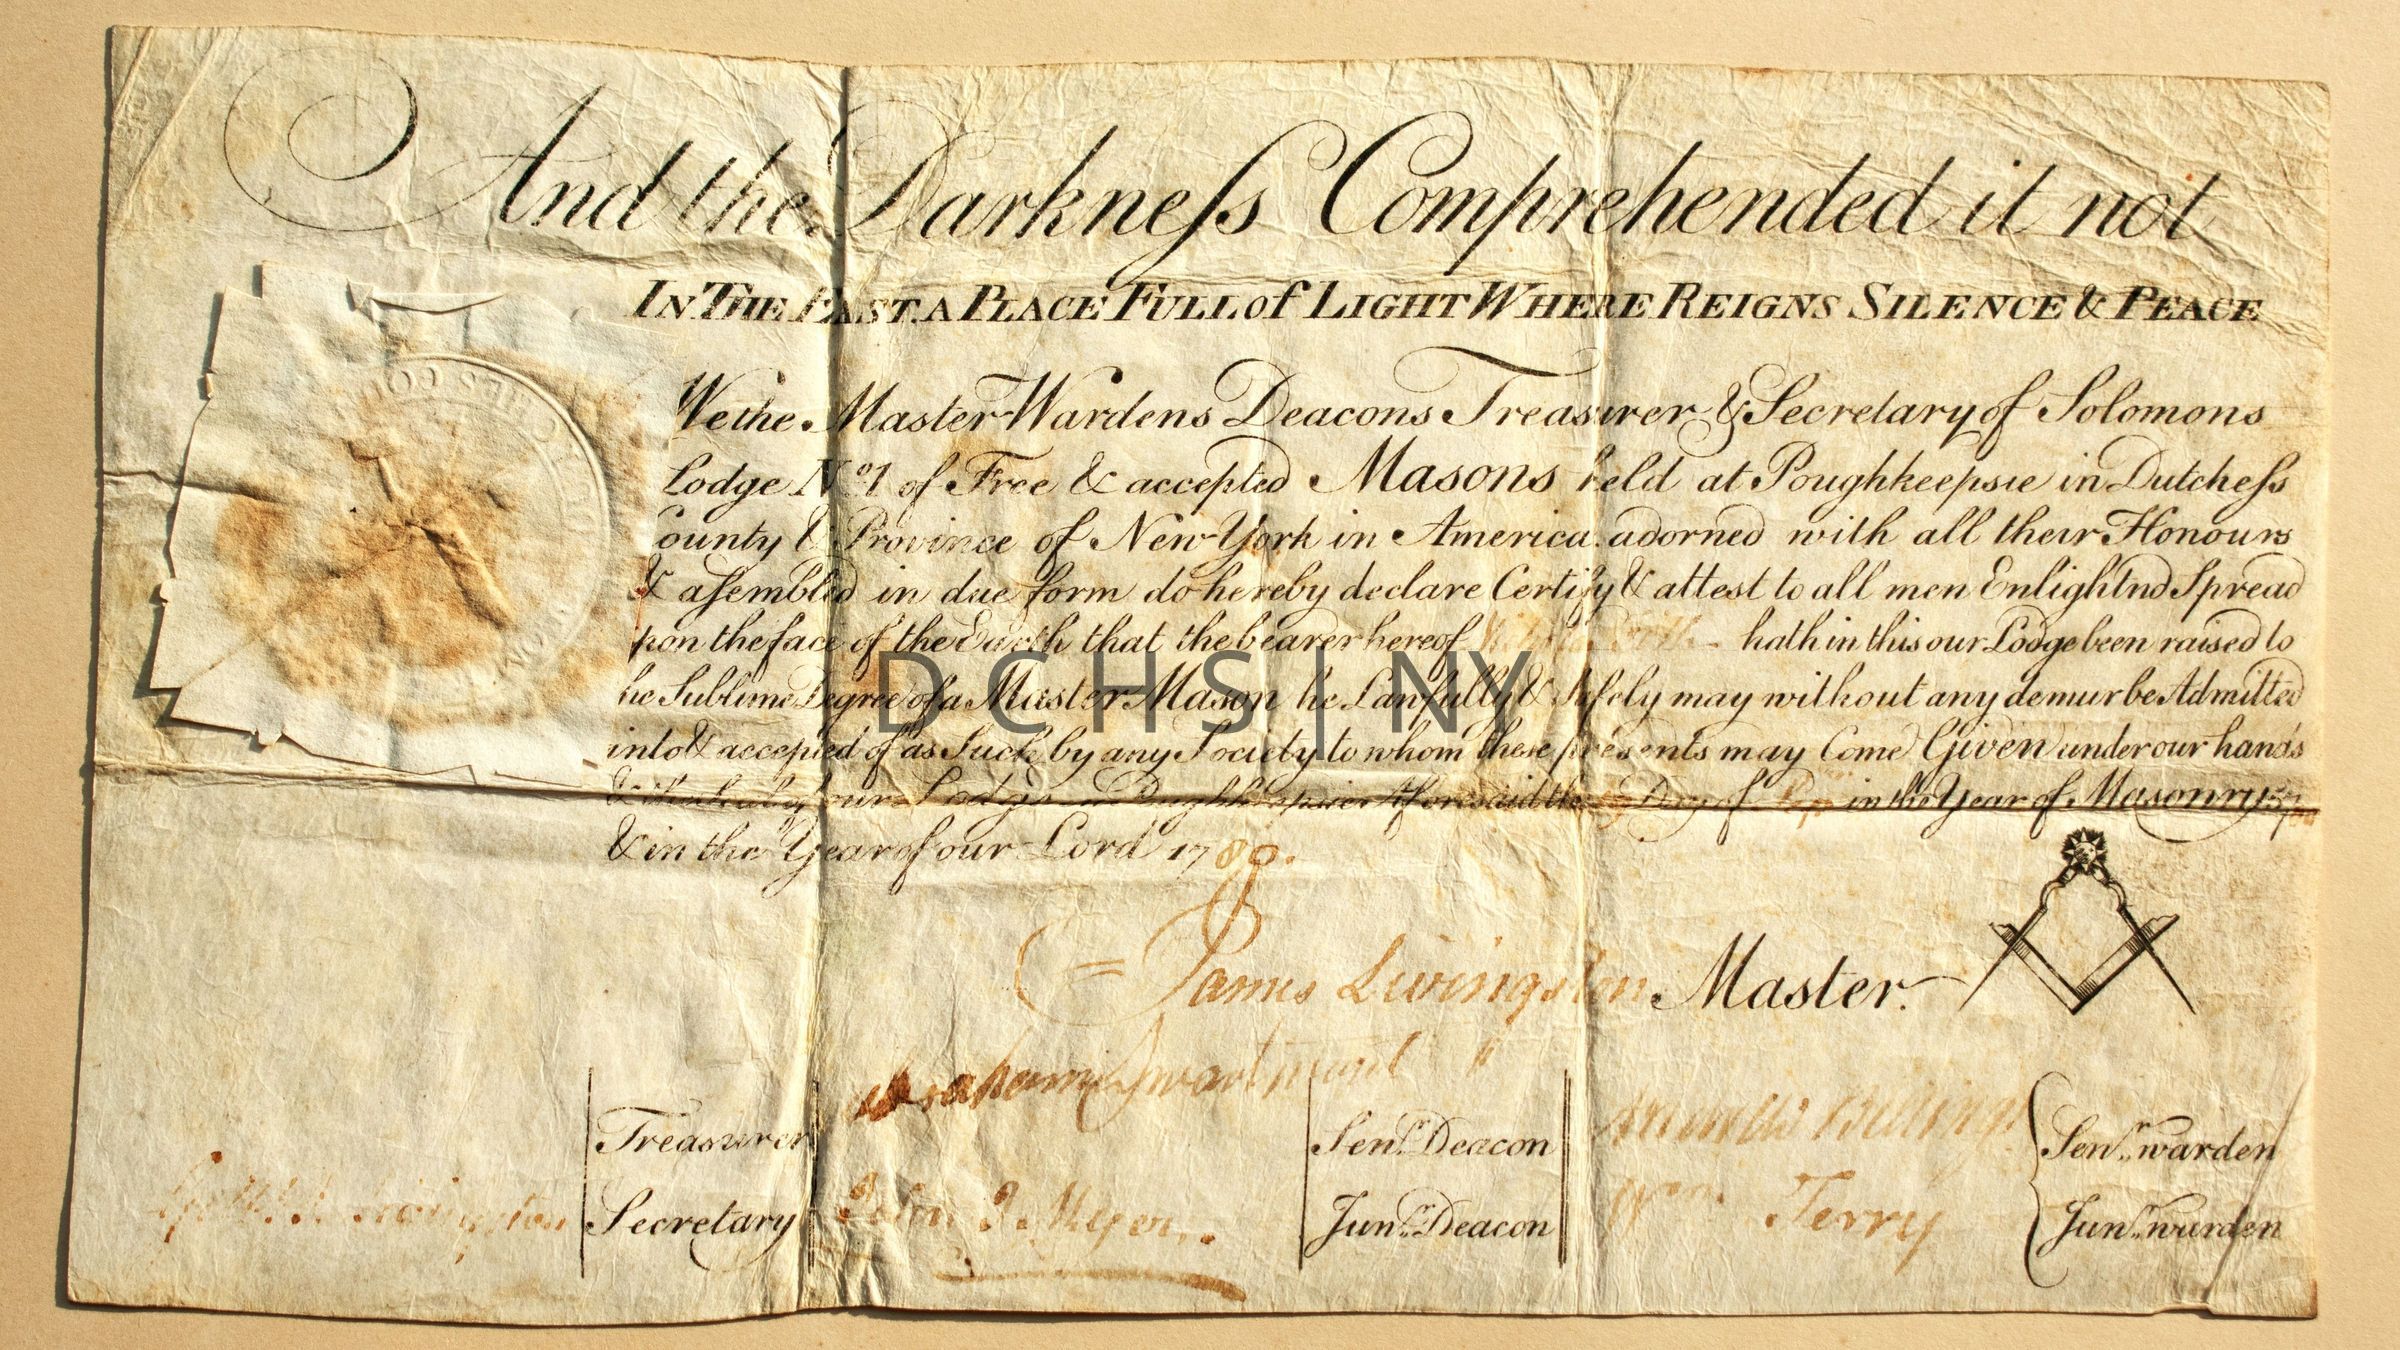 And the Darkneſs Comprehended it not
IN THE EAST. A PLACE FULL of LIGHT WHERE REIGNS SILENCE & PEACE
We the Master Wardens Deacons Treasurer & Secretary of Solomons
Lodge No. 1 of Free & accepted Masons held at Poughkeepsie in Dutcheſs
County & Province of New York in America adorned with all their Honours
& aſembled in due form do hereby declare Certify & attest to all men Enlightnd Spread
pon the face of the Earth that the bearer hereof hath in this our Lodge been raised to
he Sublime Degree of a Master Mason he Lawfully & Safely may without any demur be Admitted
into & accepted of as Such by any Society to whom these presents may Come Given under our hands
our Lodge Aforesaid the Day of in the Year of Masonry
& in the Year of our Lord 1789.
James Livingston Master.
Abraham Swartwout
Treasurer Sen.r Deacon Billings Sen.r warden
Livingston Secretary John J Meyer Jun.r Deacon Wm. Terry Jun.r warden
DCHS | NY